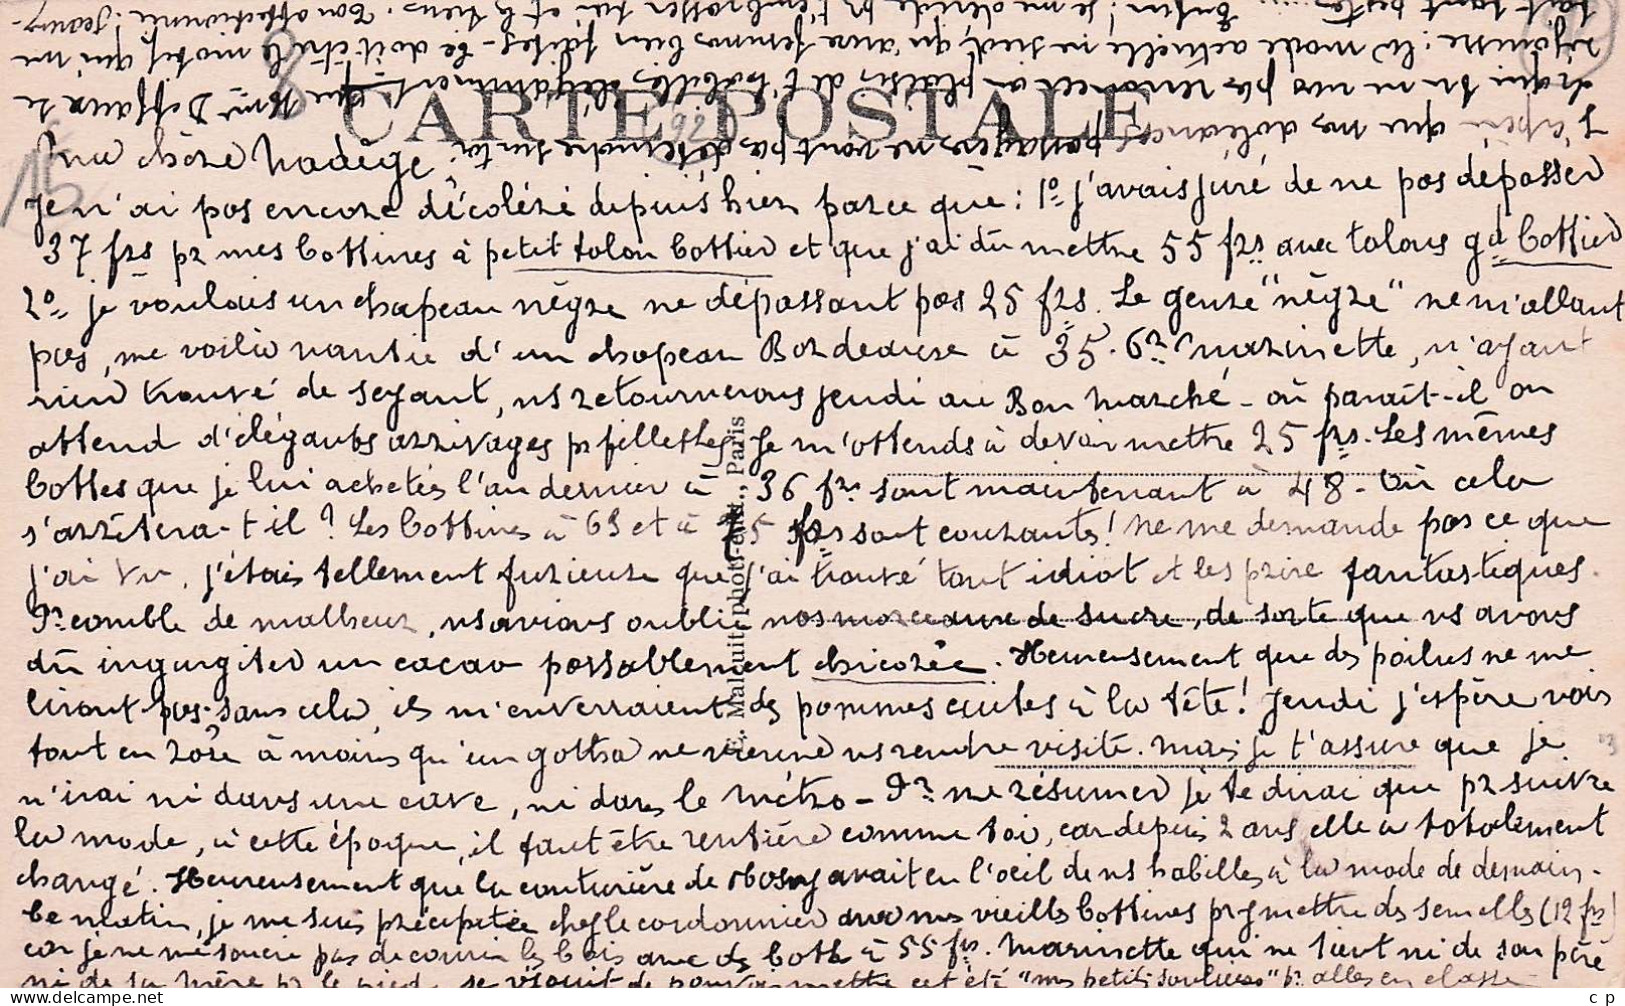 CARTE POSTALE
Ma chère Nadège,
Je n'ai pas encore décoléré depuis hier parce que : 1º j'avais juré de ne pas dépasser
37 frs pr mes bottines à petit talon bottier et que j'ai dû mettre 55 frs avec talons gd bottier
2º je voulais un chapeau nègre ne dépassant pas 25 frs. Le genre "nègre" ne m'allant
pas, me voilà nantie d'un chapeau Bordeaux à 35. Pr Marinette, n'ayant
rien trouvé de seyant, ns retournerons jeudi au Bon Marché - où paraît-il on
attend d'élégants arrivages pr fillettes. Je m'attends à devoir mettre 25 frs. Les mêmes
bottes que je lui achetées l'an dernier à 36 frs sont maintenant à 48 - Où cela
s'arrêtera-t-il ? Les bottines à 65 et à 75 frs sont courantes ! Ne me demande pas ce que
j'ai vu, j'étais tellement furieuse que j'ai trouvé tout idiot et les prix fantastiques.
Pr comble de malheur, ns avions oublié nos morceaux de sucre, de sorte que ns avons
dû ingurgiter un cacao passablement chicorée. Heureusement que des poilus ne me
liront pas sans cela ils m'enverraient des pommes cuites à la tête ! Jeudi j'espère voir
tout en rose à moins qu'un gotha ne vienne ns rendre visite. Mais je t'assure que je
n'irai ni dans une cave, ni dans le Métro - Pr me résumer je te dirai que pr suivre
la mode, à cette époque, il faut être rentière comme toi, car depuis 2 ans elle a totalement
changé. Heureusement que la couturière de Rosny avait eu l'oeil de ns habiller à la mode de demain.
Ce matin, je me suis précipitée chez le cordonnier avec mes vieilles bottines pr y mettre des semelles (12 frs)
car je ne me soucie pas de courir les bois avec des bottes à 55 frs. Marinette qui ne tient ni de son père
ni de sa mère pr le pied, se réjouit de pouvoir mettre cet été "mes petits souliers" pr aller en classe
J'espère que mes doléances passagères ne vont pas déteindre sur toi
et qui tu ne vas pas renoncer au plaisir de t'habiller élégamment que Mme Deffaux se
rejouisse : la mode actuelle ne sied qu'aux femmes bien faites - Ce doit être le motif qui me
fait tant pester ... Enfin ! je me décide pr t'embrasser toi et les tiens. Ton affectionnée Jeanne
E. Malcuit, phot-édit., Paris